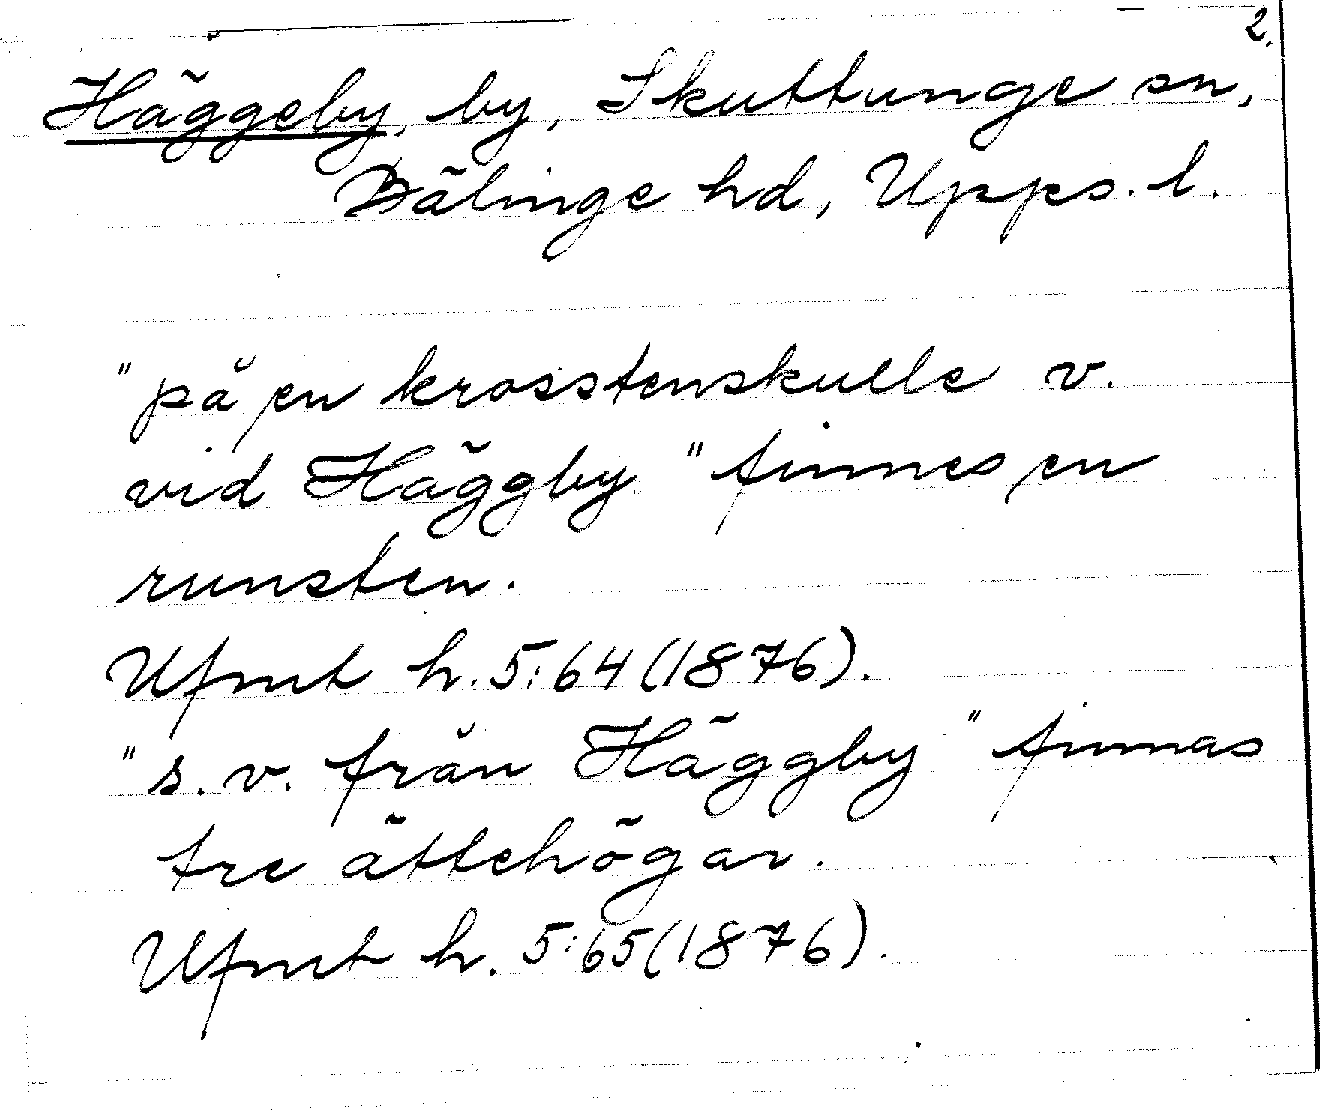 2.
Häggeby, by, Skuttunge sn,
Bälinge hd, Upps. l.
"på en krosstenskulle v.
vid Häggby" finnes en
runsten.
Ufmt h. 5:64 (1876).
"s.v. från Häggby" finnas
tre ättehögar.
Ufmt h. 5:65 (1876).